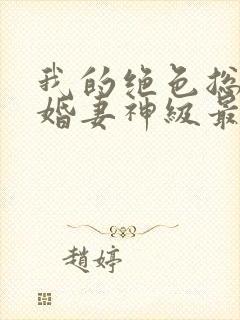 我的绝色总
婚妻神级最
赵婷